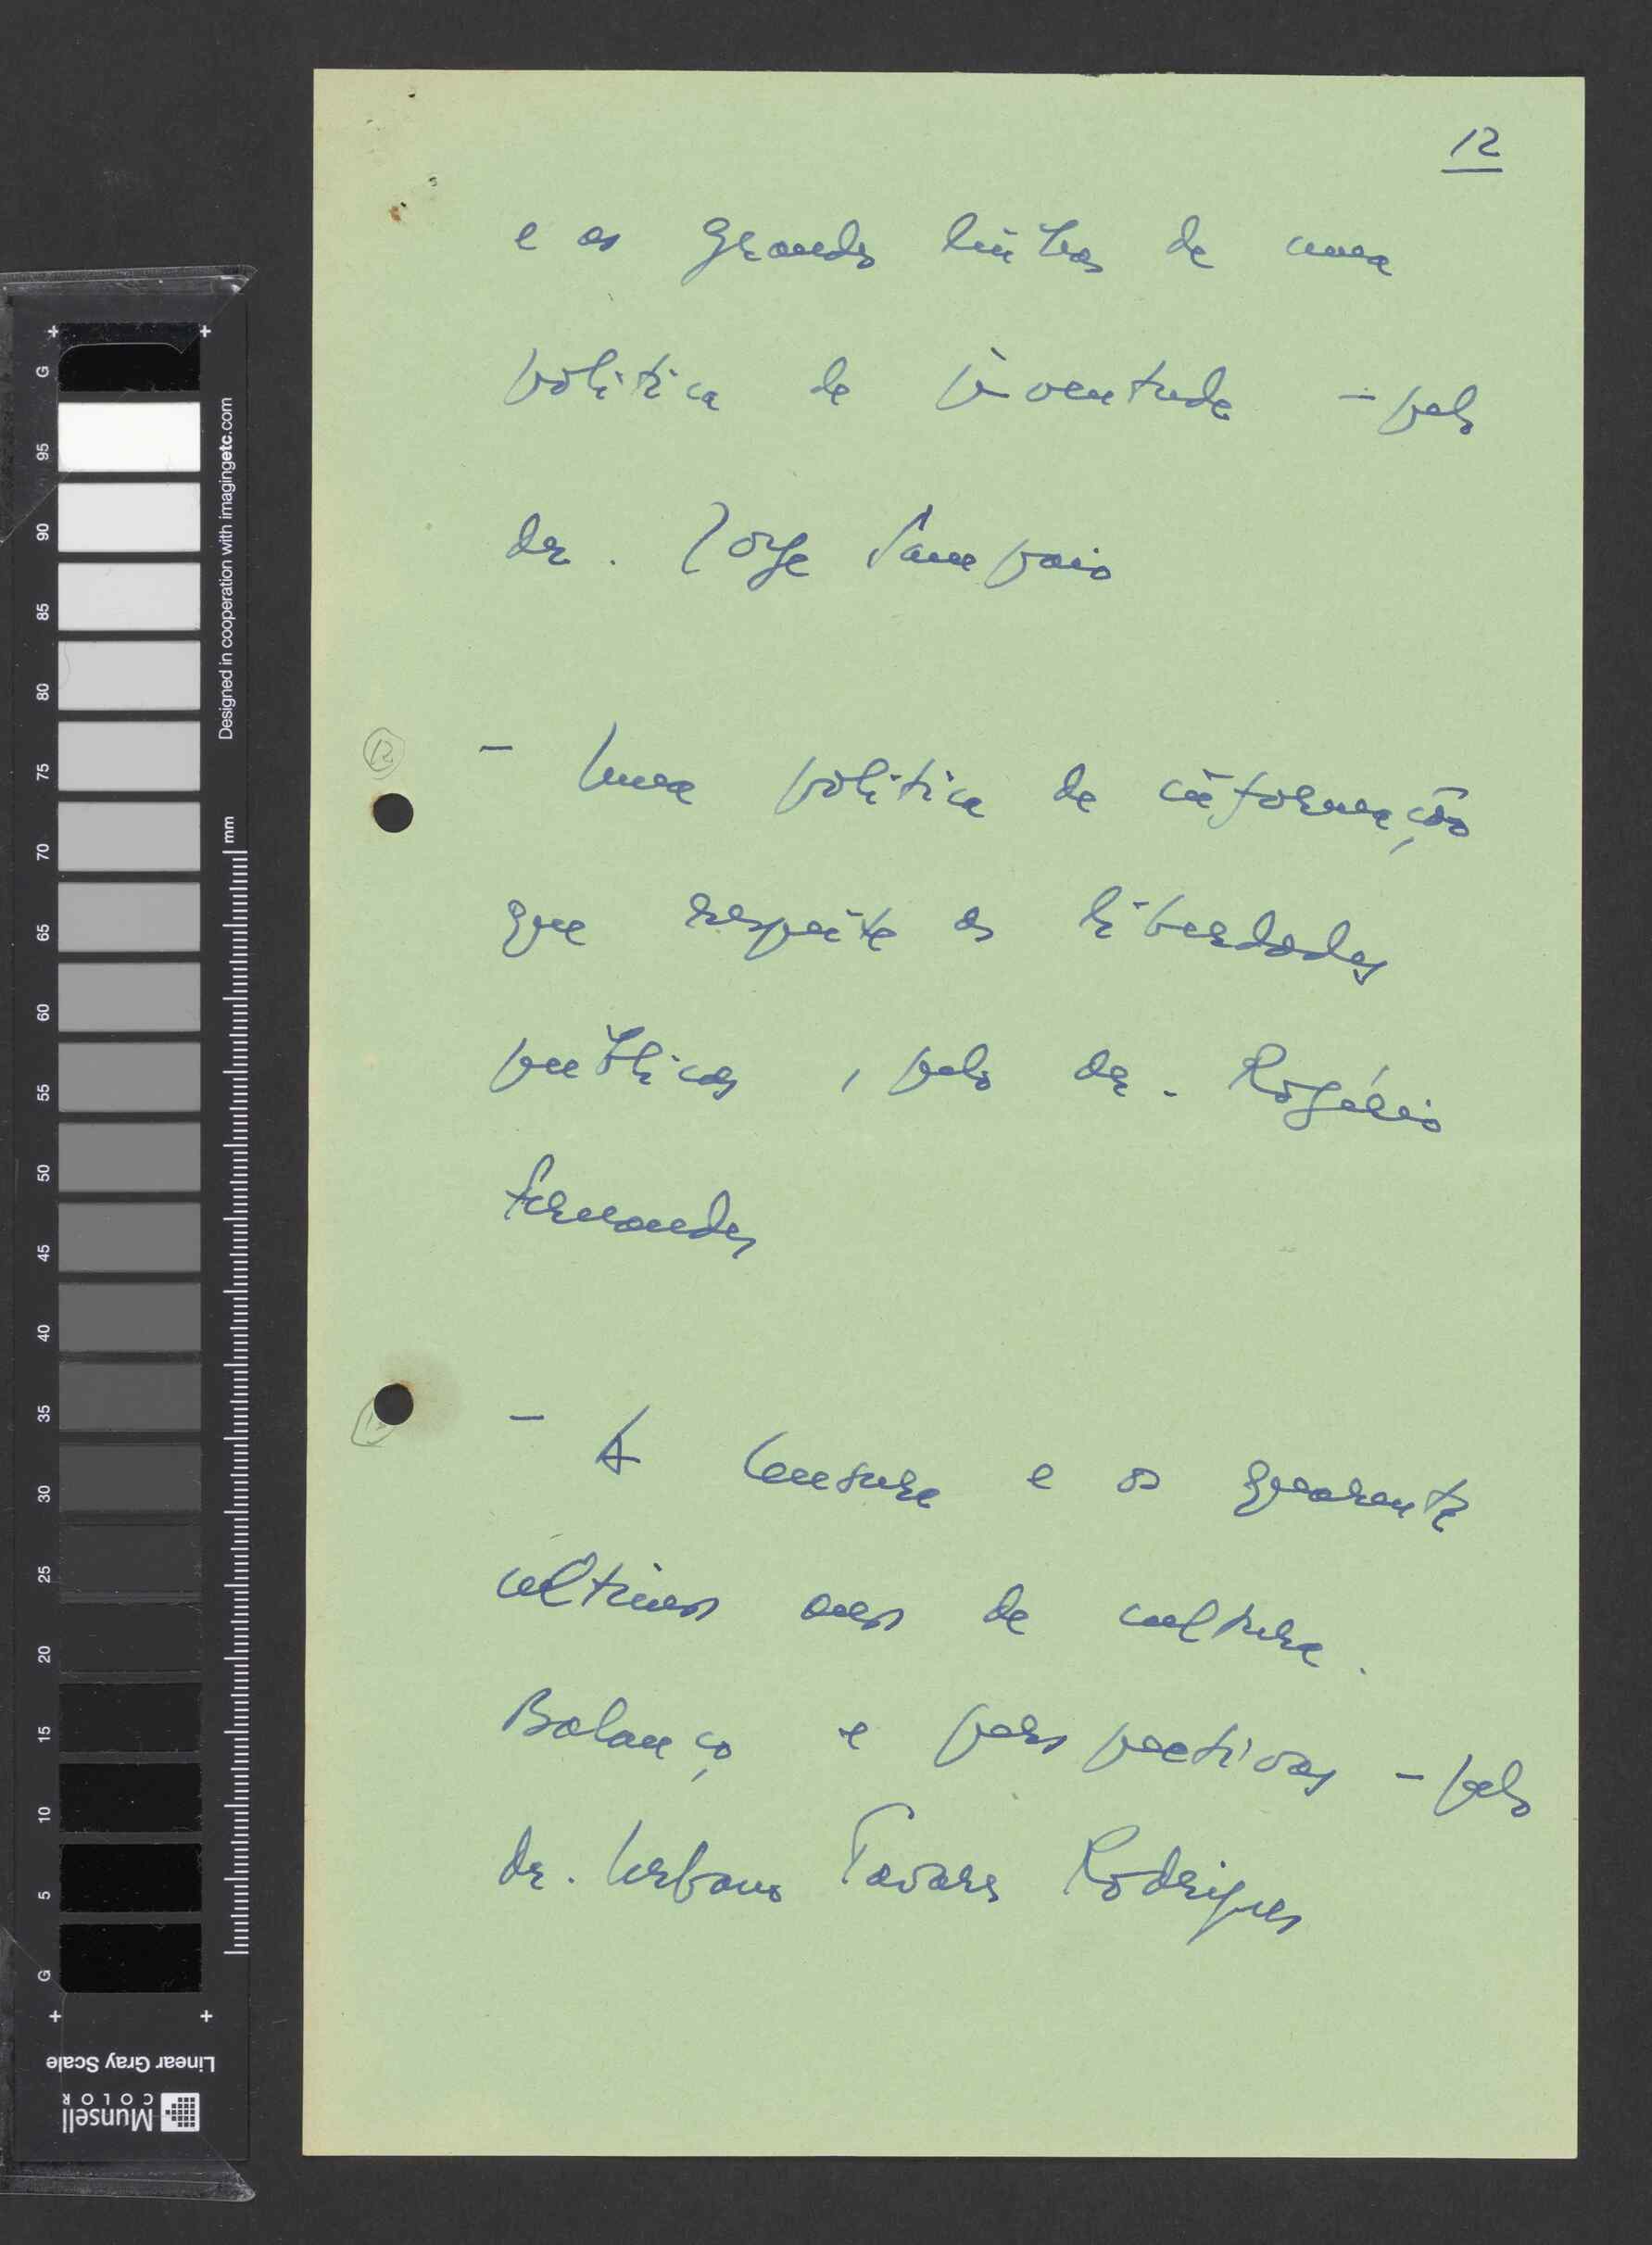 12
e as grandes linhas de uma
politica de juventude - pelo
dr. Jorge Sampaio
12
- Uma politica de informação
que respeite as liberdades
publicas, pelo dr. Rogério
Fernandes
- A Censura e os quarenta
ultimos anos de cultura.
Balanço e perspectivas - pelo
dr. Urbano Tavares Rodrigues
Designed in cooperation with imagingetc.com
mm
G
95
90
85
80
75
70
65
60
55
50
45
40
35
30
25
20
15
10
5
G
Linear Gray Scale
Munsell
COLOR